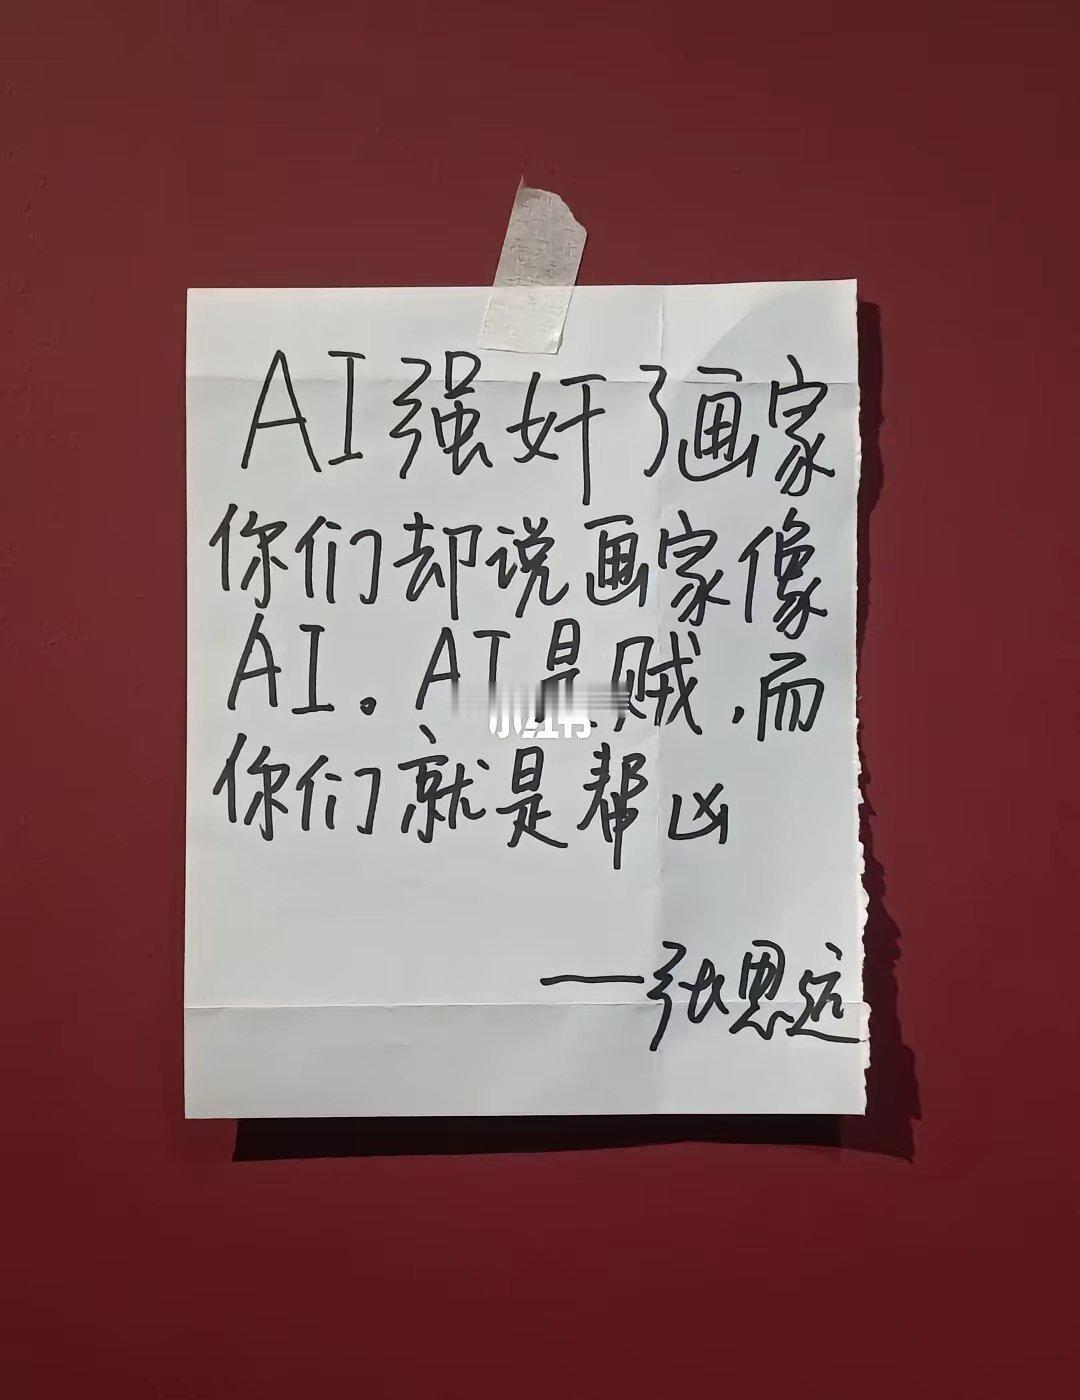 AI强奸了画家
你们却说画家像
AI。AI是贼,而
你们就是帮凶
——张恩远
小红书